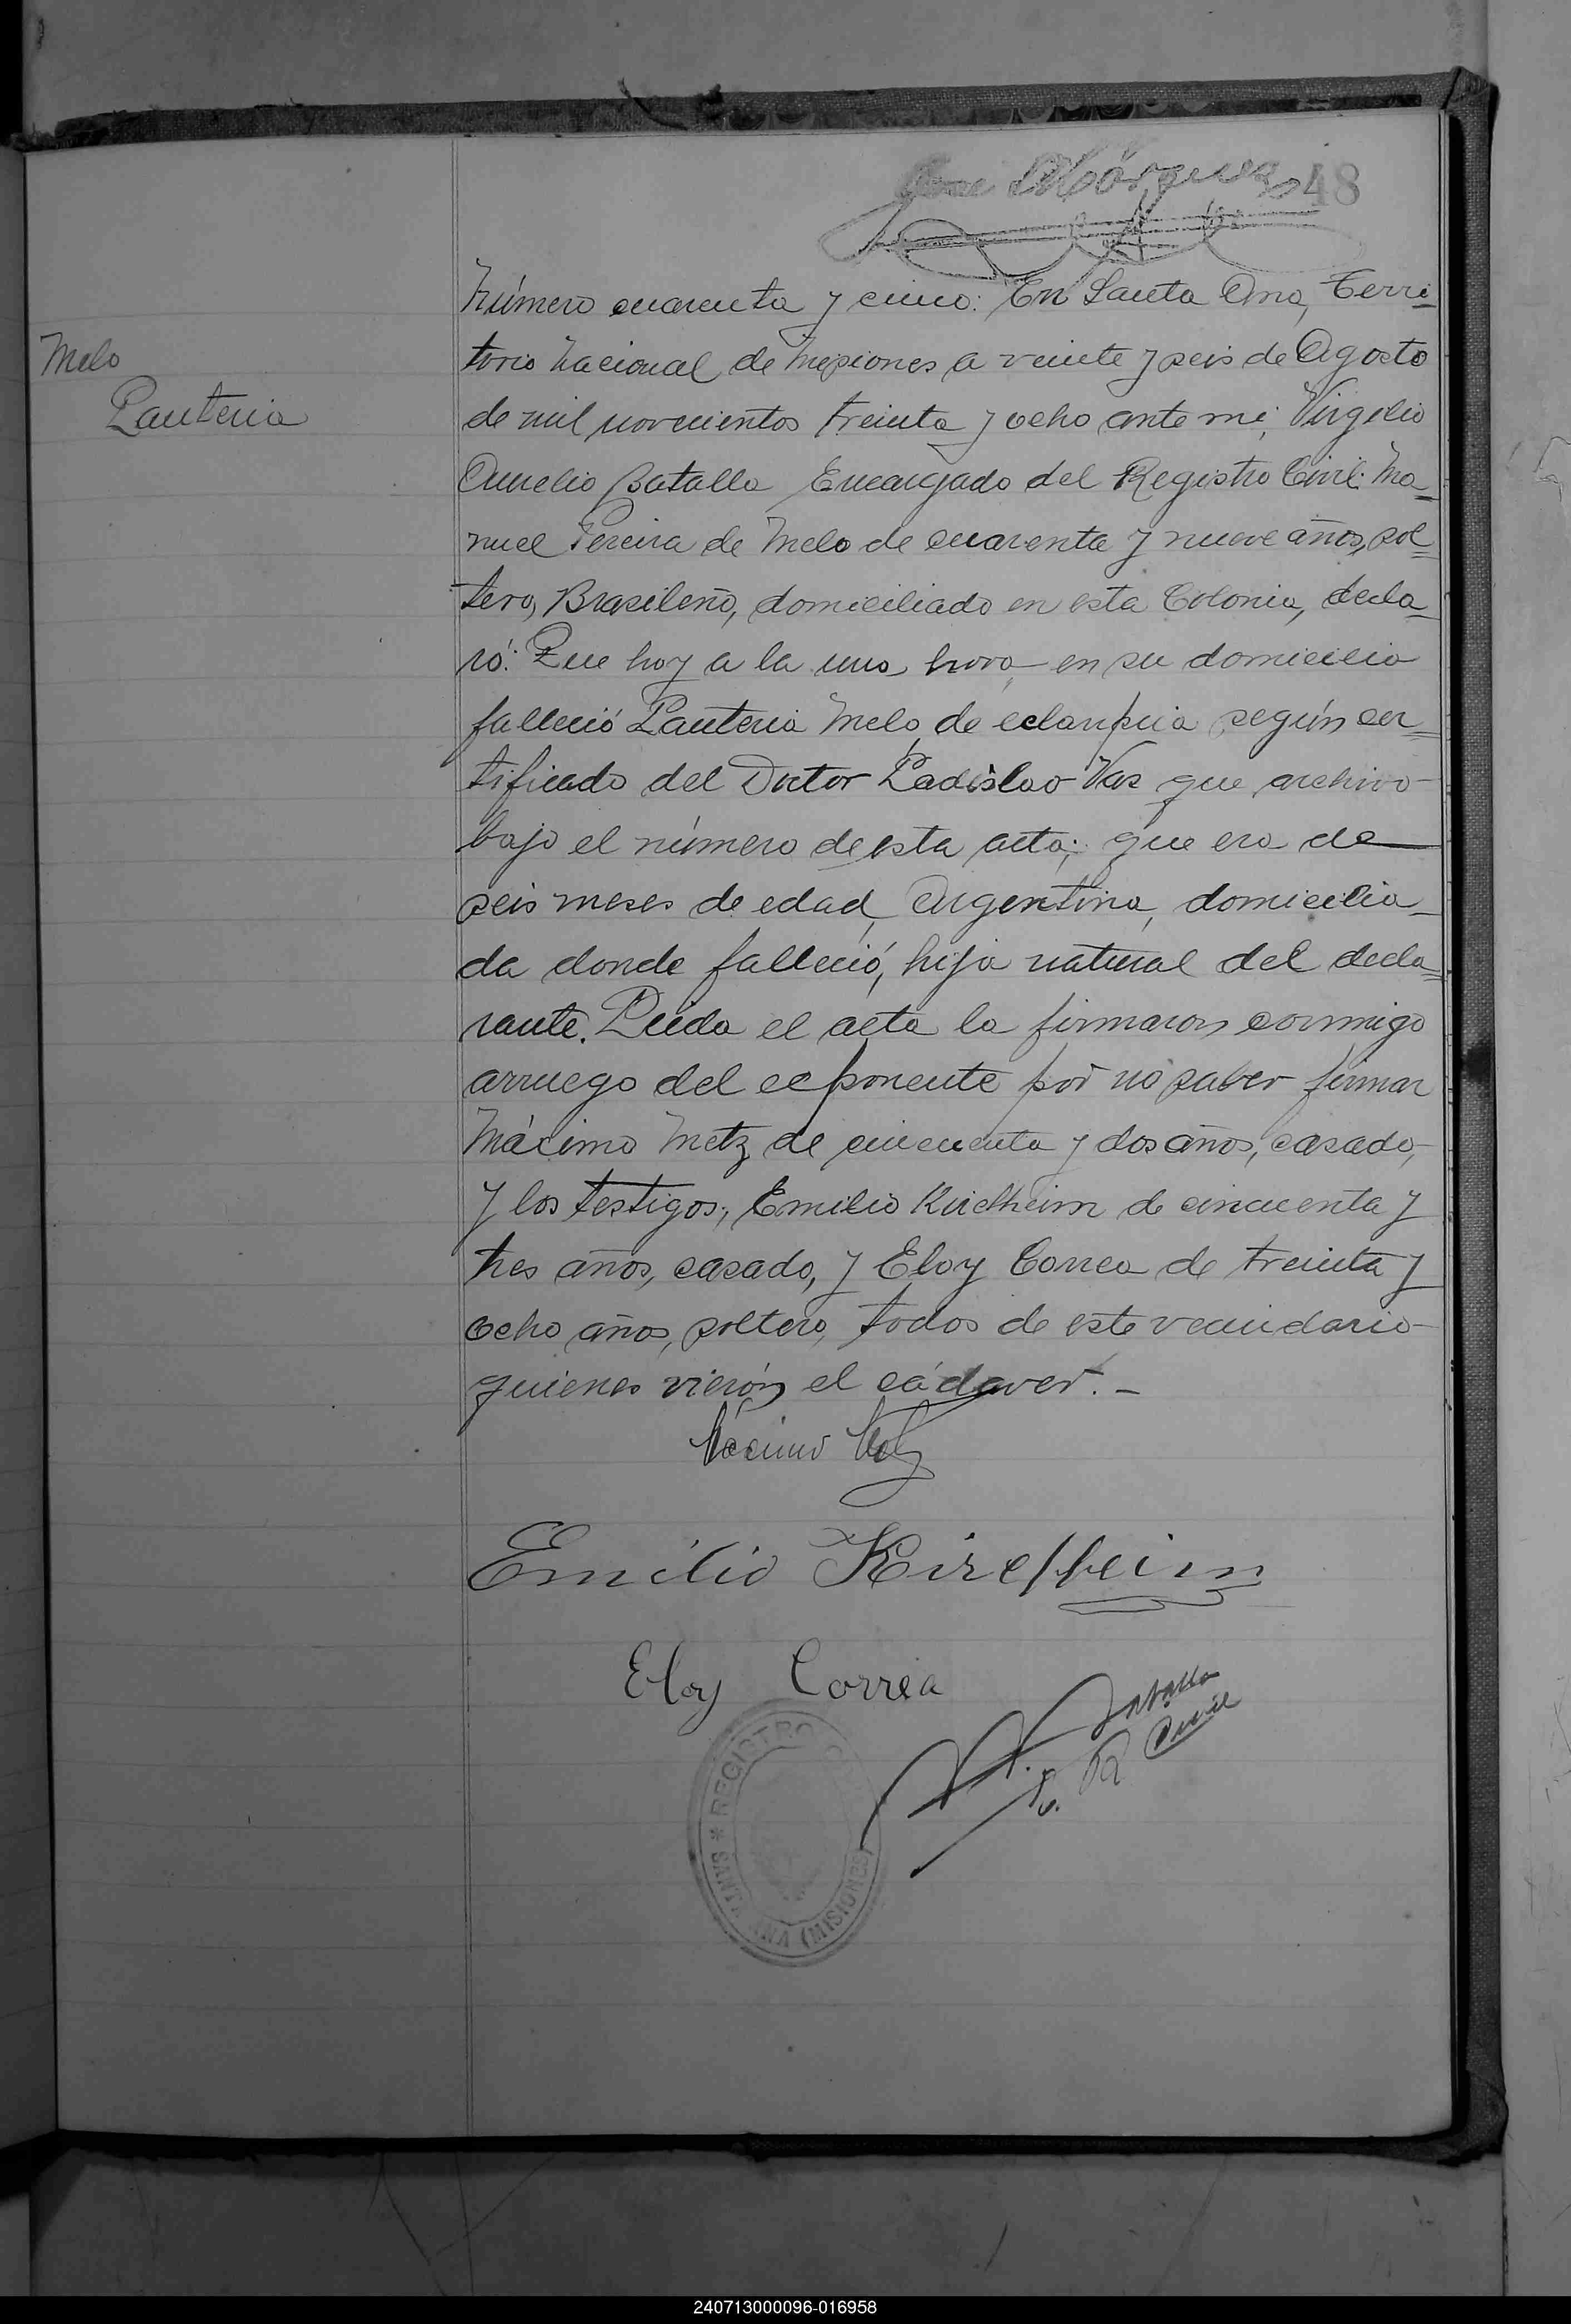 Jose Márquez 48
Número cuarenta y cinco: En Santa Ana, Terri
Melo
torio Nacional de Misiones a veinte y seis de Agosto
Lauteria
de mil novecientos treinta y ocho ante mi, Virgilio
Aurelio Batalla Encargado del Registro Civil: Ma
nuel Pereira de Melo de cuarenta y nueve años, sol
tero, Brasileño, domiciliado en esta Colonia, decla
ró: Que hoy a la una hora en su domicilio
falleció Lauteria Melo, de eclampcia según cer
tificado del Doctor Ladislao Vas que archivo
bajo el número de esta acta; que era de
seis meses de edad, Argentina, domicilia
da donde falleció, hija natural del decla
rante. Leida el acta la firmaron conmigo
arruego del exponente por no saber firmar
Máximo Metz de cincuenta y dos años, casado,
y los testigos; Emilio Kirchheim de cincuenta y
tres años, casado, y Eloy Correa de treinta y
ocho años, soltero, todos de este vecindario
quienes vierón el cádaver.-
Máximo Metz
Emilio Kirchheim
Eloy Correa
V. A. Batalla
E. R. Civil
* REGISTRO
SANTA ANA (MISIONES)
240713000096-016958